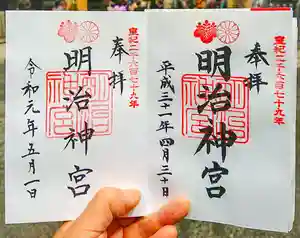 皇紀二千六百七十九年
奉拝
明治神宮
平成三十一年四月三十日
皇紀二千六百七十九年
奉拝
明治神宮
令和元年五月一日